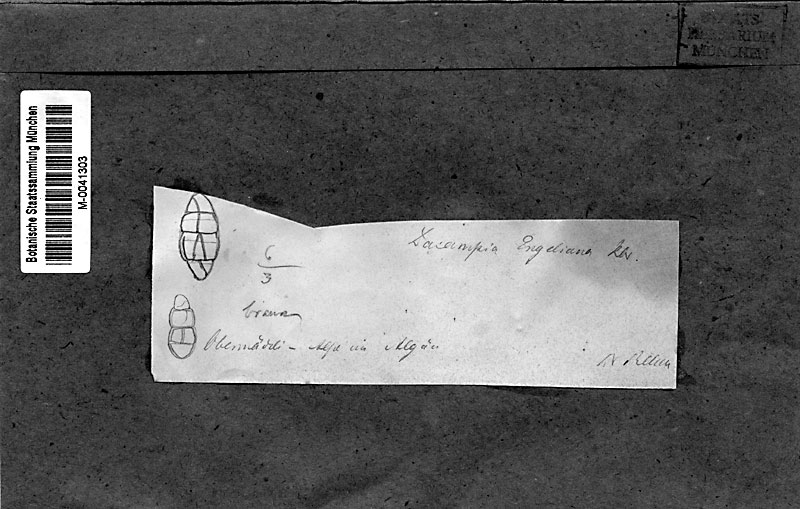 STAATS
HERBARIUM
MÜNCHEN
Botanische Staatssammlung München
M-0041303
Dacampia Engeliana Kbr.
6
3
braun
Obermädeli-Alpe im Algäu
Dr Rehm